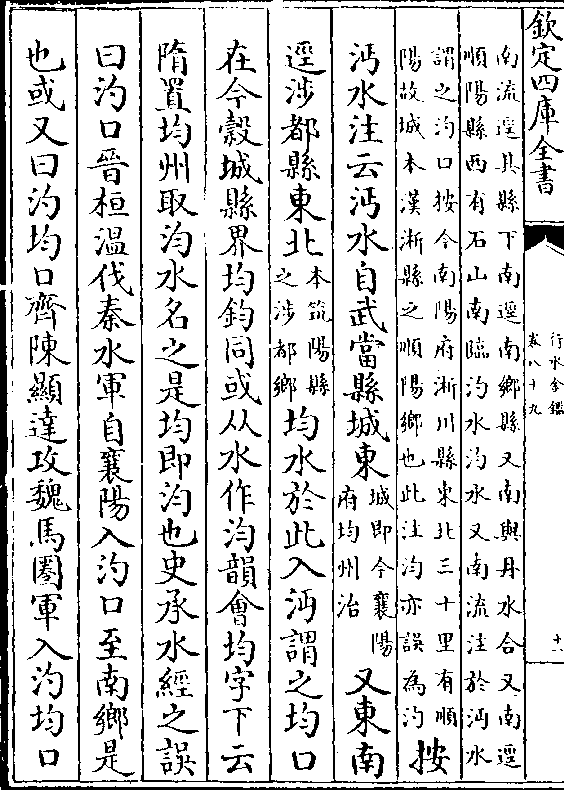 欽定四庫全書
行水金鑑
卷八十九
十一
南流逕其縣下南逕南鄉縣又南與丹水合又南逕
順陽縣西有石山南臨汮水汮水又南流注於沔水
謂之汮口按今南陽府淅川縣東北三十里有順
陽故城本漢淅縣之順陽鄉也此注汮亦誤為汋
按
沔水注云沔水自武當縣城東
城即今襄陽
府均州治
又東南
逕涉都縣東北
本筑陽縣
之涉都鄉
均水於此入沔謂之均口
在今穀城縣界均鈞同或从水作汮韻會均字下云
隋置均州取汮水名之是均即汮也史承水經之誤
曰汋口晉桓溫伐秦水軍自襄陽入汋口至南鄉是
也或又曰汋均口齊陳顯達攻魏馬圏軍入汋均口